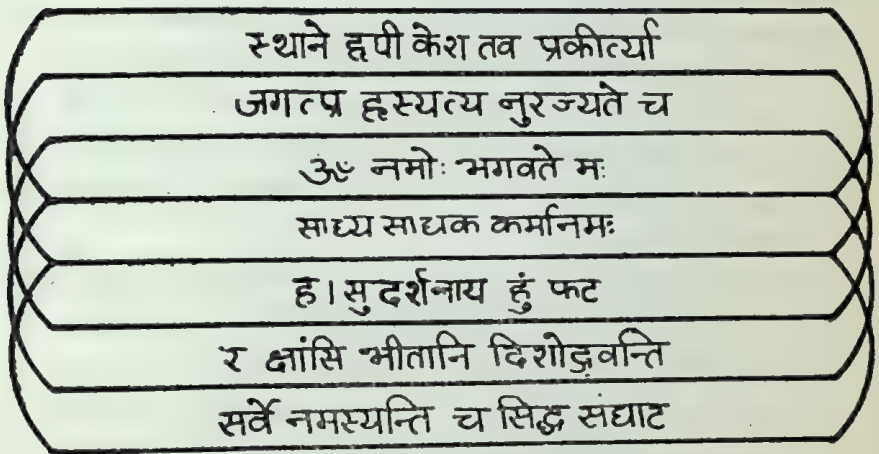 स्थाने हृपी केश तव प्रकीर्त्या
जगत्प्र हृस्यत्य नुरज्यते च
ॐ नमोः भगवते मः
साध्य साधक कर्मानमः
ह। सु दर्शनाय हुं फट
र क्षांसि भीतानि दिशोद्रवन्ति
सर्वे नमस्यन्ति च सिद्ध संघाट